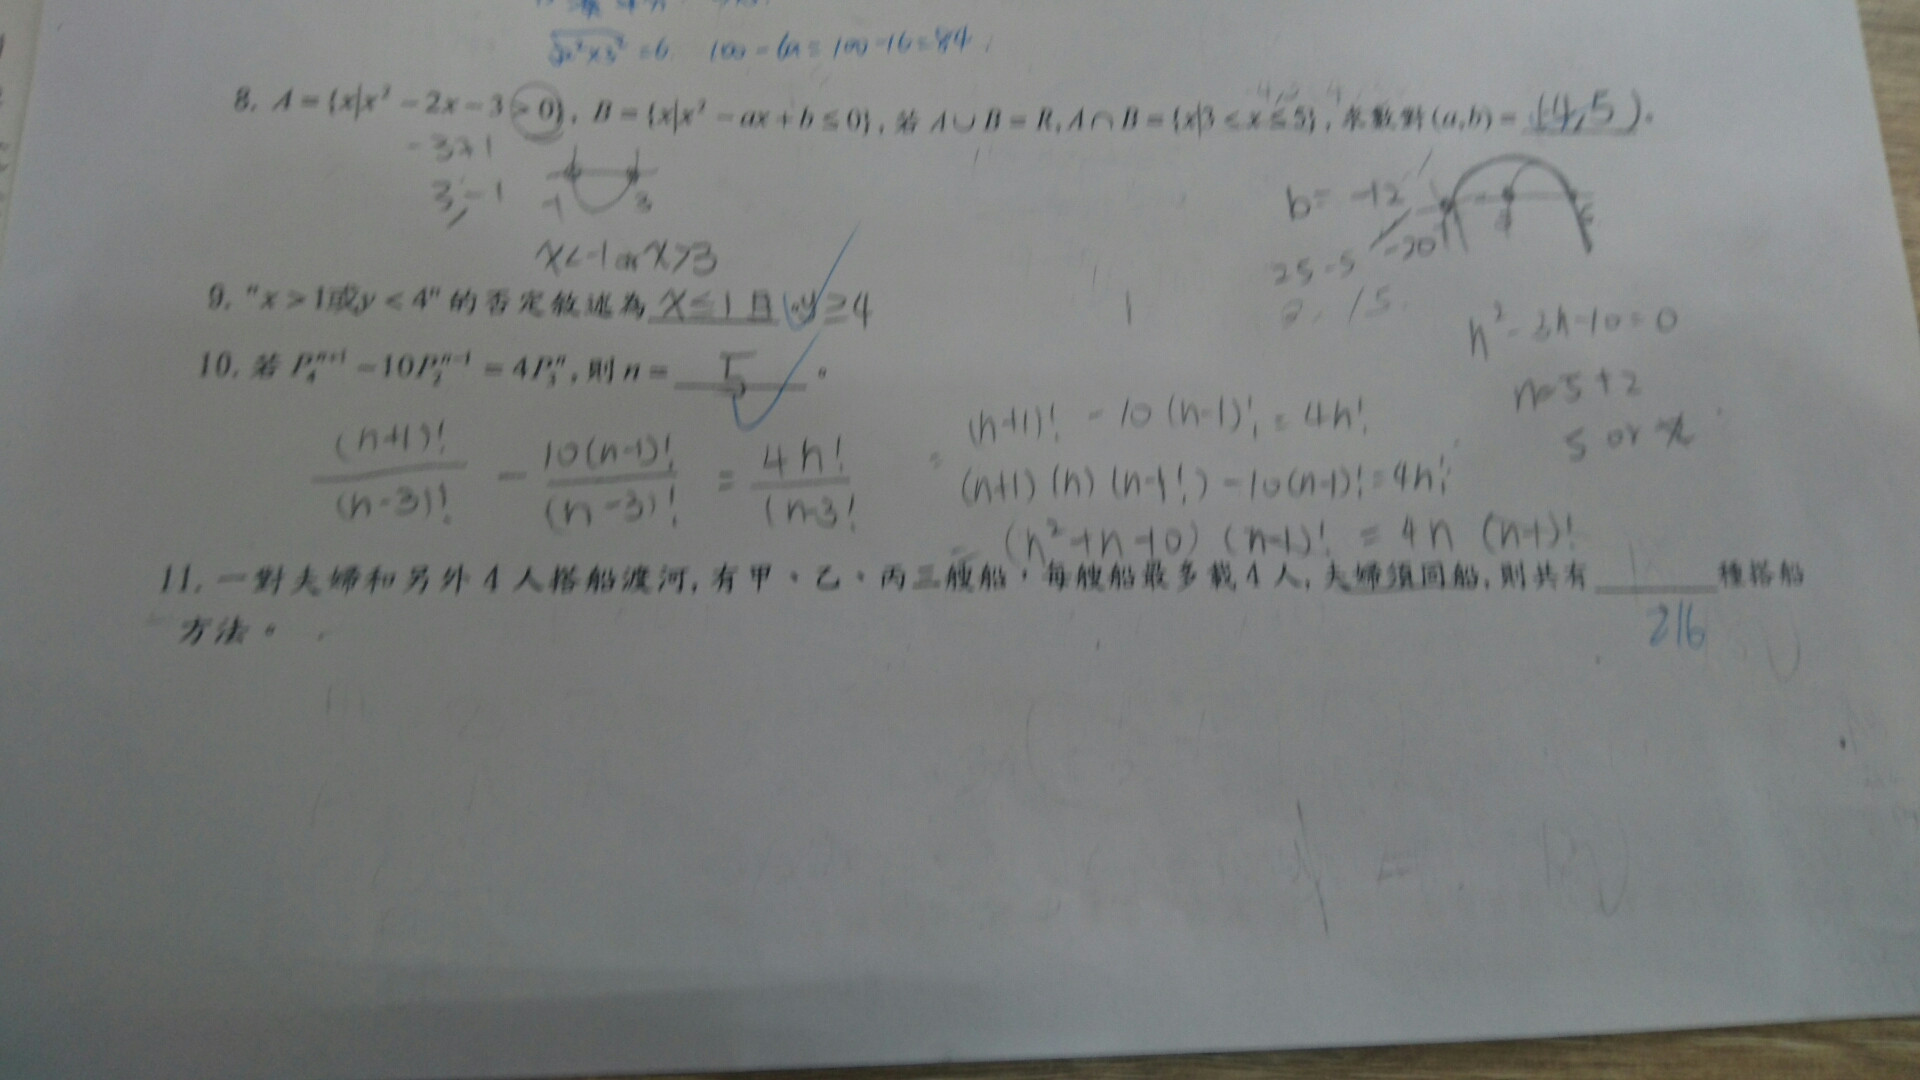 =6  100-6a=100-16=84
8. A={x|x²-2x-3>0}, B={x|x²-ax+b≤0}, 若 A∪B=R, A∩B={x|3<x≤5}, 求數對(a,b)= (4,5)。
3,-1  -1  3  b= -12
-20
x<-1 or x>3  25-5
9. "x>1或y<4" 的否定敘述為 x≤1 且 y≥4
n²-3n-10=0
10. 若 P₄ⁿ⁺¹-10P₂ⁿ⁻¹=4P₃ⁿ, 則 n= 5 。
n=5+2
(n+1)!/(n-3)! - 10(n-1)!/(n-3)! = 4n!/(n-3!
= (n+1)! - 10(n-1)! = 4n!
5 or
(n+1)(n)(n-1!)-10(n-1)!=4n!
= (n²+n-10)(n-1)! = 4n(n-1)!
11. 一對夫婦和另外 4 人搭船渡河, 有甲、乙、丙三艘船, 每艘船最多載 4 人, 夫婦須同船, 則共有 種搭船
方法。
216